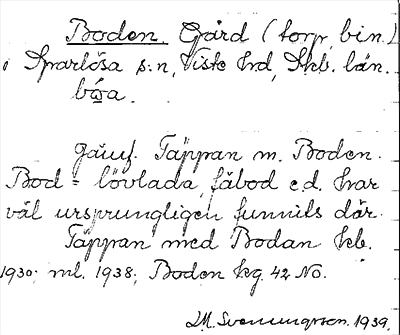 Boden. Gård (torp, bin.)
i Sparlösa s:n, Viste hd, Skb. län.
bo̤a.
Jämf. Täppan m. Boden.
Bod = lövlada, fäbod e.d. har
väl ursprungligen funnits där.
Täppan med Bodan kb.
1930; ml. 1938; Boden kg. 42 NO.
M. Svenungsson. 1939.